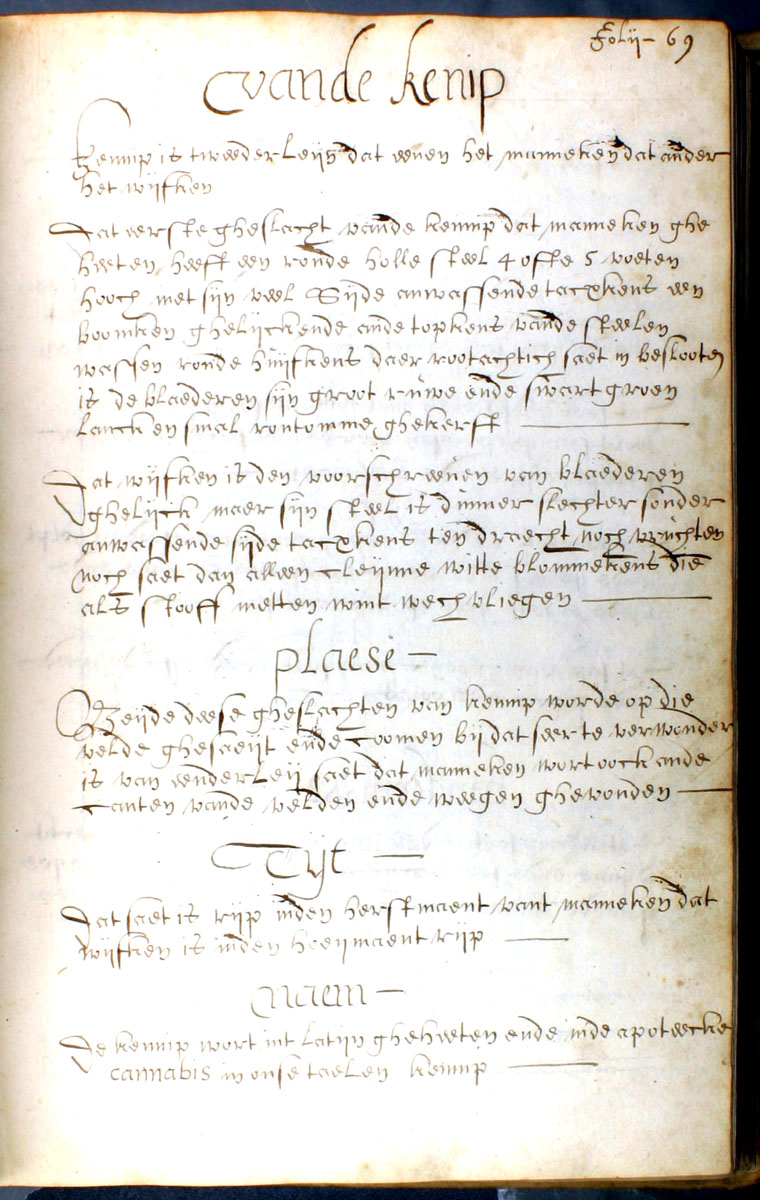 Folij - 69
vande kenip
Kennip is tweederleijn dat eenen het manneken dat ander
het wijfken
Dat eerste gheslacht vande kennip dat manneken ghe
heeten heeft een ronde holle steel 4 offte 5 voeten
hooch met sijn veel sijde anwassende tacxkens een
boomken ghelijckende ande topkens vande steelen
wassen ronde huijfkens daer rootachtich saet in beslooten
is de blaederen sijn groot ruwe ende swart groen
lanck en smal rontomme ghekerft
Dat wijfken is den voorschreeven van blaederen
ghelijck maer sijn steel is dunner slechter sonder
anwassende sijde tacxkens ten draecht noch vruchten
noch saet dan alleen cleijnne witte blommekens die
als stooff metten wint wech vliegen
plaese -
Beijde deese gheslachten van kennip worde op die
velde ghesaeijt ende coomen bij dat seer te verwonder
is van eenderleij saet dat manneken wort oock ande
canten vande velden ende weegen ghevonden
Tijt -
Dat saet is rijp inden herfstmaent vant manneken dat
wijfken is inden hoeijmaent rijp
naem -
De kennip wort int latijn gheheeten ende inde apoteecke
cannabis in onse taelen kennip